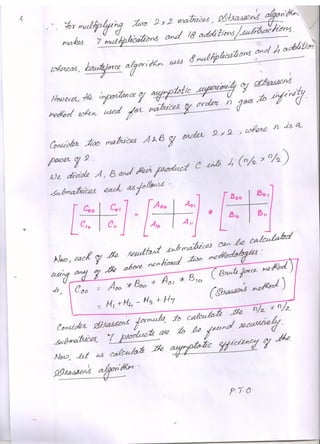 ∴ For multiplying two 2 x 2 matrices, Strassen's algorithm
makes 7 multiplications and 18 additions/subtractions,
whereas, bruteforce algorithm uses 8 multiplications and 4 addition
However, the importance of asymptotic superiority of Strassens
method when used for matrices of order n goes to infinity
Consider two matrices A & B of order 2 x 2, where n is a
power of 2.
We divide A, B and their product C into 4 (n/2 x n/2)
submatrices each as follows:
C00 C01 = A00 A01 * B00 B01
C10 C11 A10 A11 B10 B11
Now, each of the resultant submatrices can be calculated
using any of the above mentioned two methodologies:
C00 = A00 * B00 + A01 * B10 (Brute force method)
= M1 + M4 - M5 + M7 (Strassen's method)
Consider Strassens formula, to calculate the n/2 x n/2
submatrices, 7 products are to be found recursively.
Now, let us calculate the asymptotic efficiency of the
Strassen's algorithm.
P.T.O